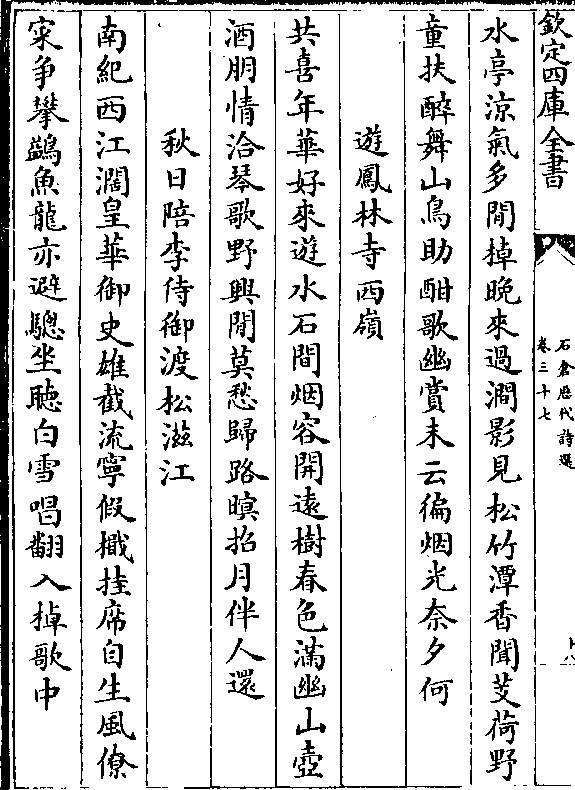 欽定四庫全書
石倉歷代詩選
卷三十七
水亭涼氣多閒棹晚來過澗影見松竹潭香聞芰荷野
童扶醉舞山鳥助酣歌幽賞未云徧烟光奈夕何
遊鳳林寺西嶺
共喜年華好來遊水石間烟容開遠樹春色滿幽山壺
酒朋情洽琴歌野興閒莫愁歸路暝招月伴人還
秋日陪李侍御渡松滋江
南紀西江濶皇華御史雄截流寧假檝挂席自生風僚
寀争攀鷁魚龍亦避驄坐聴白雪唱翻入棹歌中